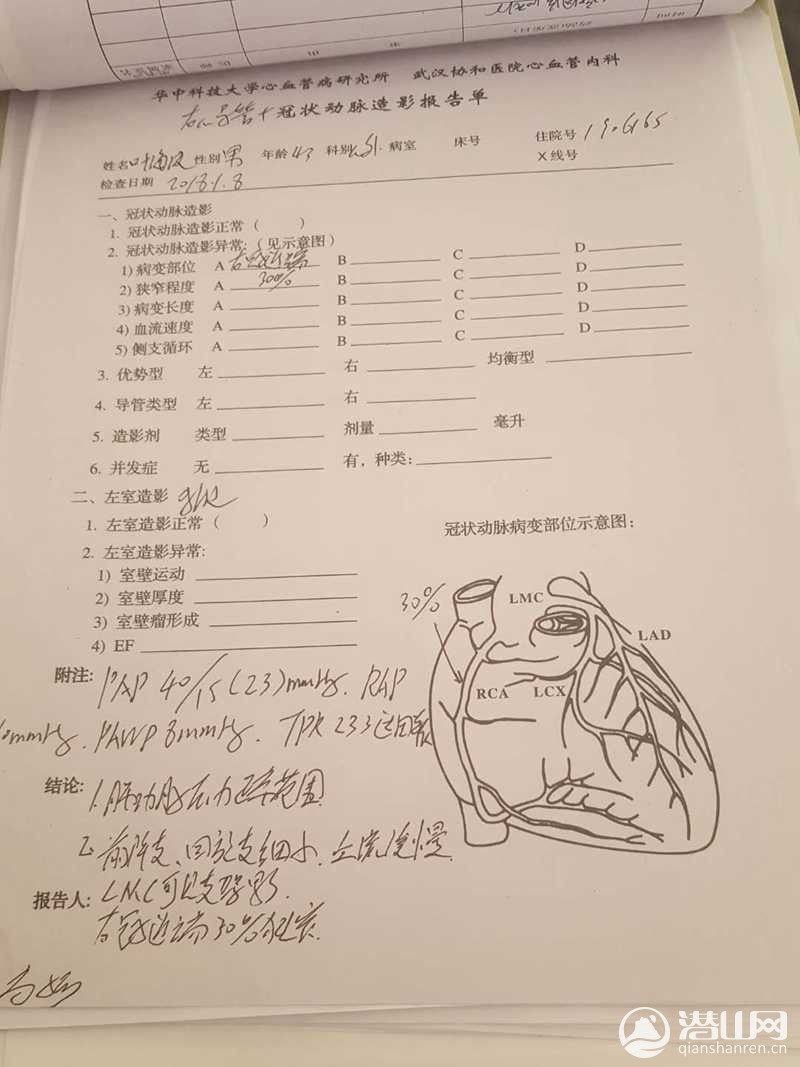 华中科技大学心血管病研究所 武汉协和医院心血管内科
右心导管+冠状动脉造影报告单
姓名 性别 男 年龄 43 科别 心外 病室 床号 住院号
检查日期 2018.1.8 X线号
一、冠状动脉造影
1. 冠状动脉造影正常 ( )
2. 冠状动脉造影异常: (见示意图)
1) 病变部位 A 右冠近端 B C D
2) 狭窄程度 A 30% B C D
3) 病变长度 A B C D
4) 血流速度 A B C D
5) 侧支循环 A B C D
3. 优势型 左 右 均衡型
4. 导管类型 左 右
5. 造影剂 类型 剂量 毫升
6. 并发症 无 有, 种类:
二、左室造影
1. 左室造影正常 ( )
冠状动脉病变部位示意图:
2. 左室造影异常:
1) 室壁运动
2) 室壁厚度
3) 室壁瘤形成
4) EF
30%
LMC
LAD
RCA
LCX
附注: PAP 40/15 (23) mmHg. RAP
mmHg. PAWP 8mmHg. TPR 233
结论: 1. 肺动脉压力正常范围
2. 前降支、回旋支细小, 血流缓慢
报告人: LMC可见支架影.
右冠近端30%狭窄.
潜山网
qianshanren.cn